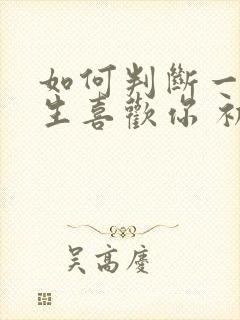 如何判斷一
生喜歡你 初
吴高慶